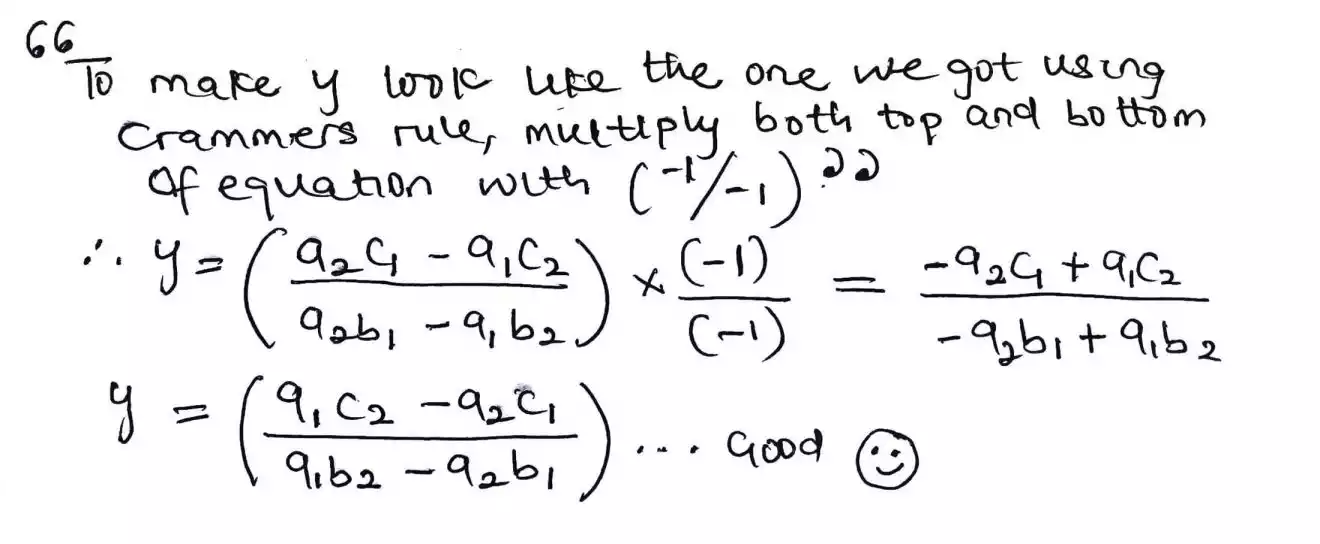 “To make y look like the one we got using
Crammers rule, multiply both top and bottom
of equation with (-1/-1)”
∴ y = ((a₂c₁ - a₁c₂)/(a₂b₁ - a₁b₂)) × (-1)/(-1) = (-a₂c₁ + a₁c₂)/(-a₂b₁ + a₁b₂)
y = ((a₁c₂ - a₂c₁)/(a₁b₂ - a₂b₁)) ... Good ☺